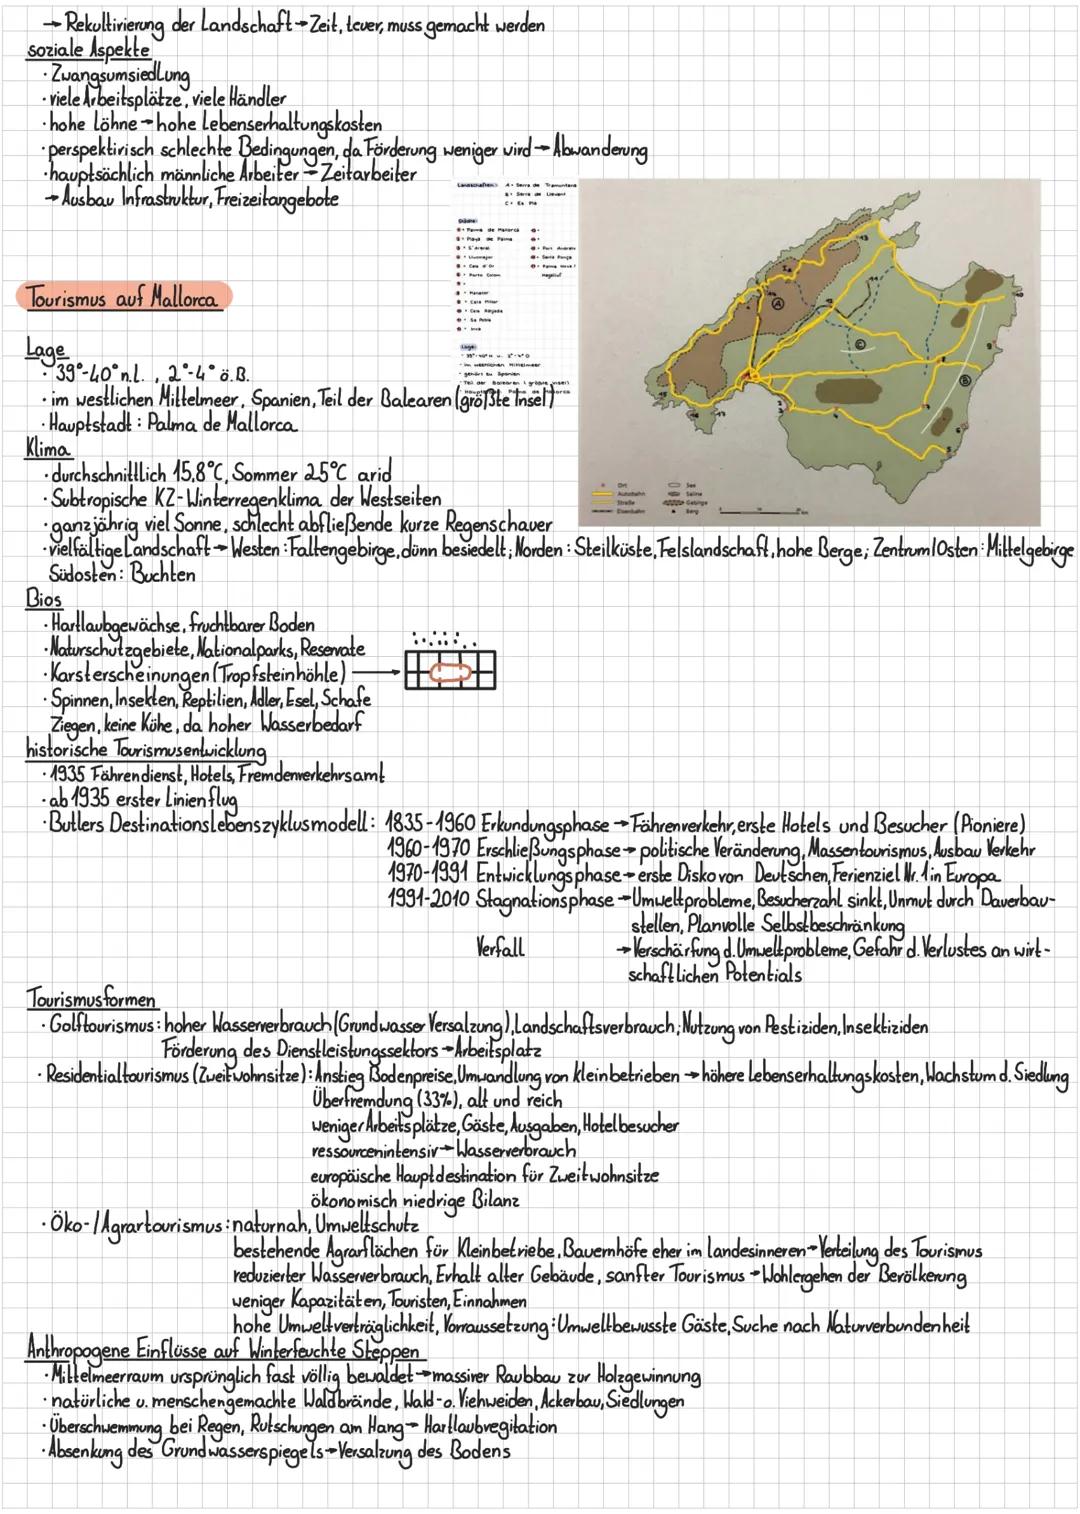 → Rekultivierung der Landschaft → Zeit, teuer, muss gemacht werden
soziale Aspekte
· Zwangsumsiedlung
· viele Arbeitsplätze, viele Händler
· hohe Löhne → hohe Lebenserhaltungskosten
· perspektivisch schlechte Bedingungen, da Förderung weniger wird → Abwanderung
· hauptsächlich männliche Arbeiter → Zeitarbeiter
→ Ausbau Infrastruktur, Freizeitangebote
Landschaften: A = Serra de Tramuntana
B = Serra de Llevant
C = Es Pla
Städte:
Palma de Mallorca
Playa de Palma
S'Arenal
Llucmajor
Cala d'Or
Porto Colom
Manacor
Cala Millor
Cala Ratjada
Sa Pobla
Inca
Port Andratx
Santa Ponça
Palma Nova /
Magaluf
Lage:
· im westlichen Mittelmeer
· gehört zu Spanien
· Teil der Balearen (größte Insel)
A
B
C
Ort
Autobahn
Straße
Eisenbahn
See
Saline
Gebirge
Berg
Tourismus auf Mallorca
Lage
· 39°-40° n.l. , 2°-4° ö.B.
· im westlichen Mittelmeer, Spanien, Teil der Balearen (größte Insel)
· Hauptstadt: Palma de Mallorca
Klima
· durchschnittlich 15,8°C, Sommer 25°C arid
· Subtropische KZ - Winterregenklima der Westseiten
· ganzjährig viel Sonne, schlecht abfließende kurze Regenschauer
· vielfältige Landschaft → Westen: Faltengebirge, dünn besiedelt; Norden: Steilküste, Felslandschaft, hohe Berge; Zentrum/Osten: Mittelgebirge
Südosten: Buchten
Bios
· Hartlaubgewächse, fruchtbarer Boden
· Naturschutzgebiete, Nationalparks, Reservate
· Karsterscheinungen (Tropfsteinhöhle) →
· Spinnen, Insekten, Reptilien, Adler, Esel, Schafe
Ziegen, keine Kühe, da hoher Wasserbedarf
historische Tourismusentwicklung
· 1935 Fährendienst, Hotels, Fremdenverkehrsamt
· ab 1935 erster Linienflug
· Butlers Destinationslebenszyklusmodell: 1835-1960 Erkundungsphase → Fährenverkehr, erste Hotels und Besucher (Pioniere)
1960-1970 Erschließungsphase → politische Veränderung, Massentourismus, Ausbau Verkehr
1970-1991 Entwicklungsphase → erste Disko von Deutschen, Ferienziel Nr. 1 in Europa
1991-2010 Stagnationsphase → Umweltprobleme, Besucherzahl sinkt, Unmut durch Dauerbau-
stellen, Planvolle Selbstbeschränkung
Verfall → Verschärfung d. Umweltprobleme, Gefahr d. Verlustes an wirt-
schaftlichen Potentials
Tourismusformen
· Golftourismus: hoher Wasserverbrauch (Grundwasser Versalzung), Landschaftsverbrauch; Nutzung von Pestiziden, Insektiziden
Förderung des Dienstleistungssektors → Arbeitsplatz
· Residentialtourismus (Zweitwohnsitze): Anstieg Bodenpreise, Umwandlung von Kleinbetrieben → höhere Lebenserhaltungskosten, Wachstum d. Siedlung
Überfremdung (33%), alt und reich
weniger Arbeitsplätze, Gäste, Ausgaben, Hotelbesucher
ressourcenintensiv → Wasserverbrauch
europäische Hauptdestination für Zweitwohnsitze
ökonomisch niedrige Bilanz
· Öko-/Agrartourismus: naturnah, Umweltschutz
bestehende Agrarflächen für Kleinbetriebe, Bauernhöfe eher im landesinneren → Verteilung des Tourismus
reduzierter Wasserverbrauch, Erhalt alter Gebäude, sanfter Tourismus → Wohlergehen der Bevölkerung
weniger Kapazitäten, Touristen, Einnahmen
hohe Umweltverträglichkeit, Vorraussetzung: Umweltbewusste Gäste, Suche nach Naturverbundenheit
Anthropogene Einflüsse auf Winterfeuchte Steppen
· Mittelmeerraum ursprünglich fast völlig bewaldet → massiver Raubbau zur Holzgewinnung
· natürliche u. menschengemachte Waldbrände, Wald- o. Viehweiden, Ackerbau, Siedlungen
· Überschwemmung bei Regen, Rutschungen am Hang → Hartlaubvegitation
· Absenkung des Grundwasserspiegels → Versalzung des Bodens